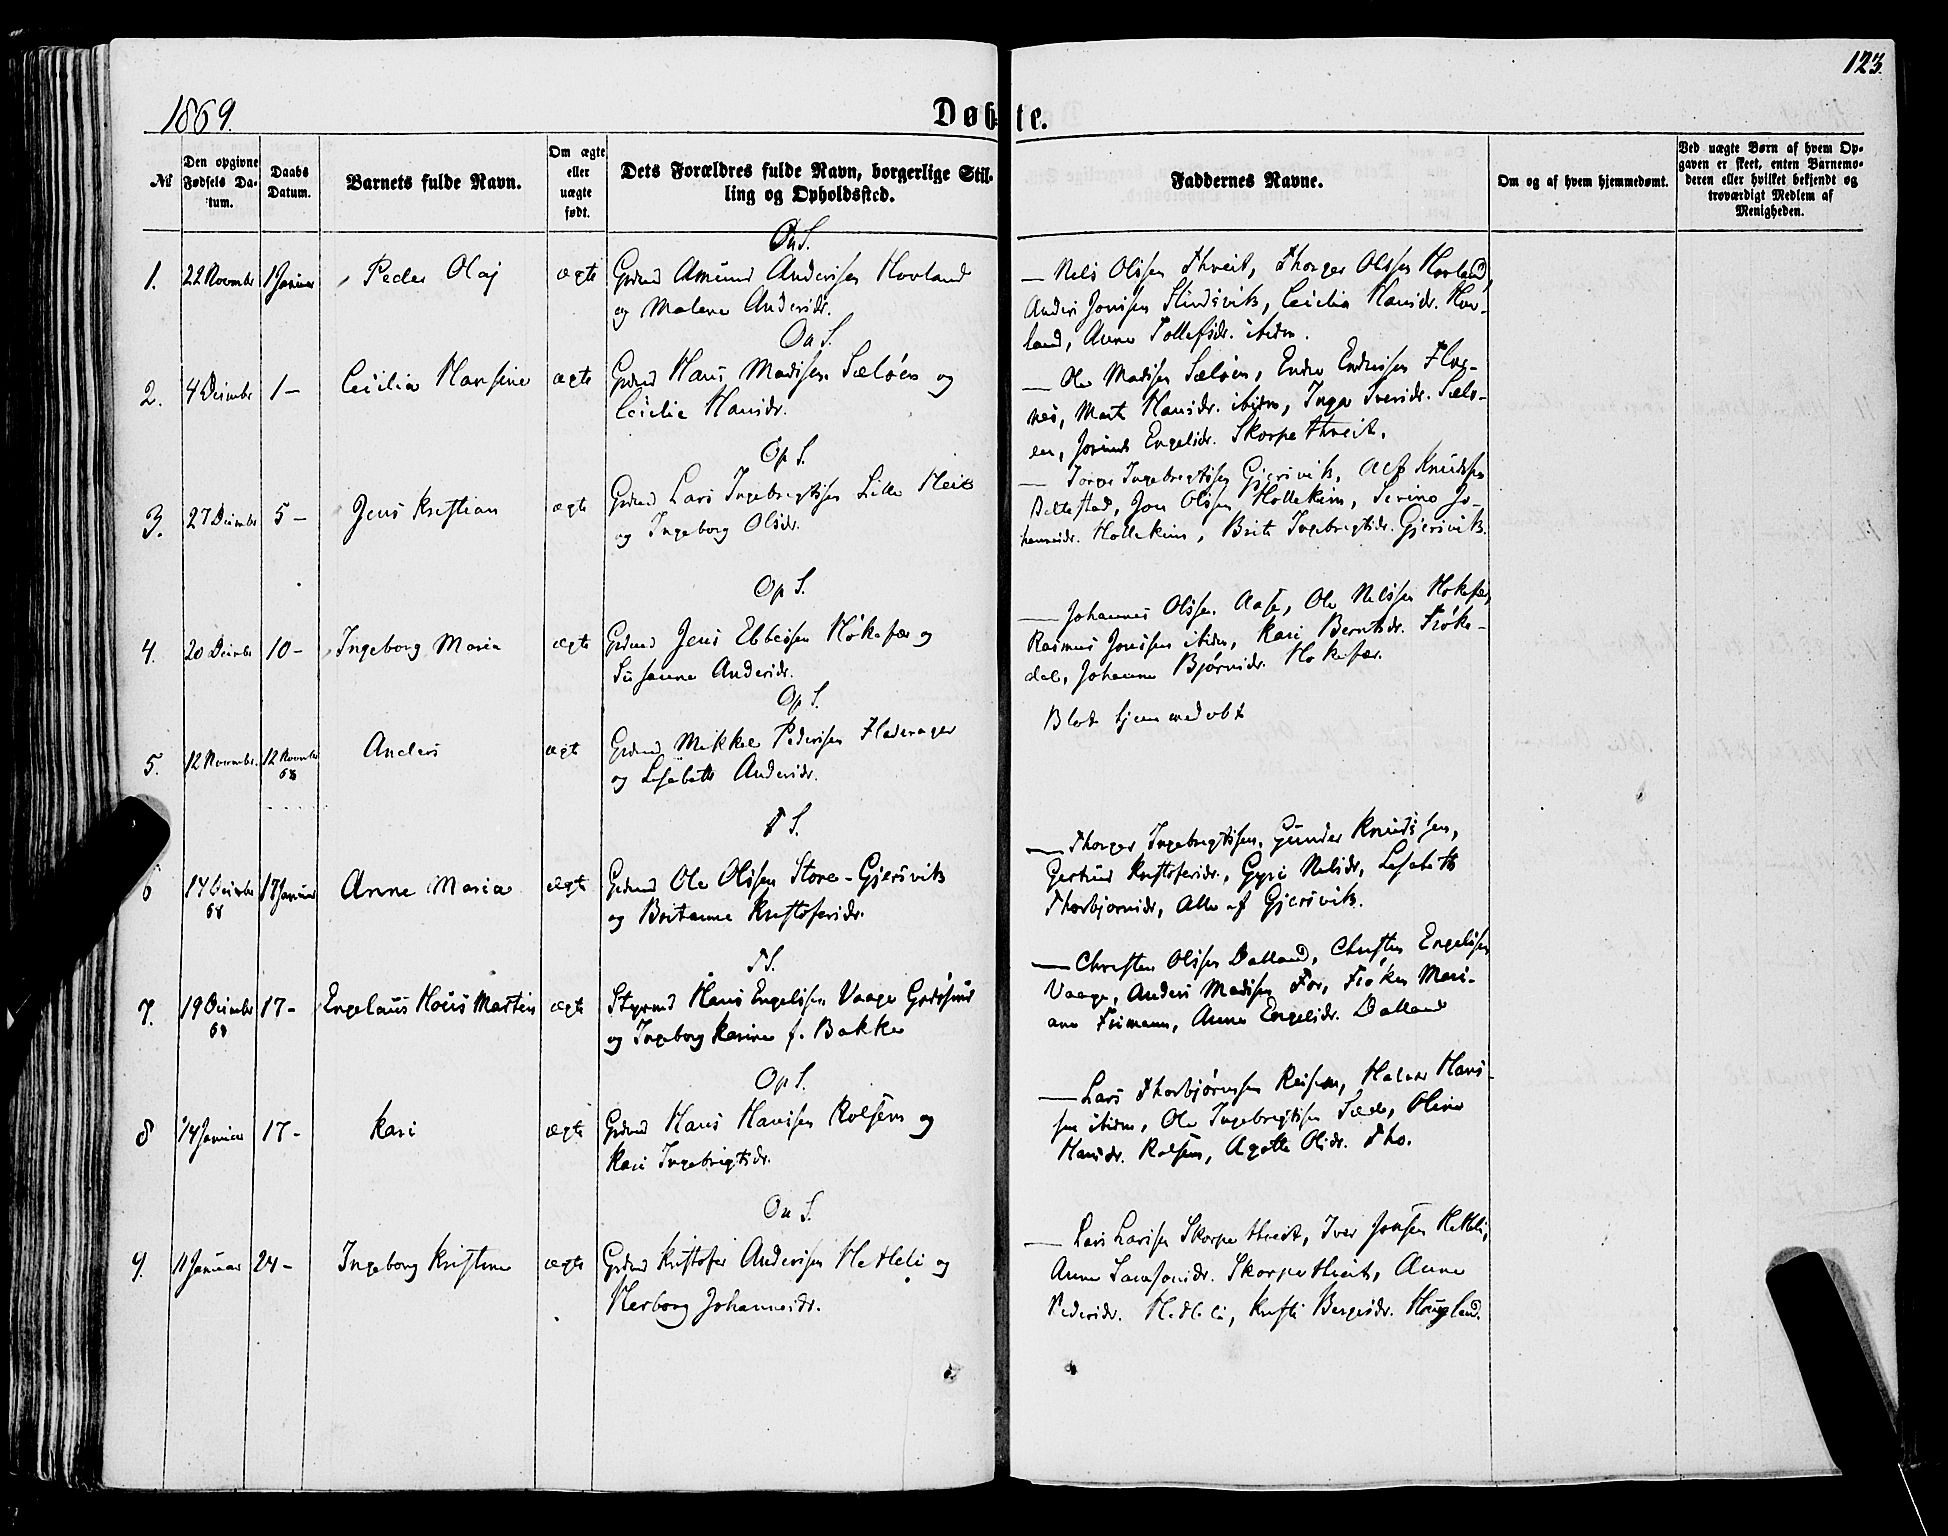 123.
1869.
Døbte.
№
Den opgivne Fødsels Datum.
Daabs Datum.
Barnets fulde Navn.
Om ægte eller uægte født.
Dets Forældres fulde Navn, borgerlige Stilling og Opholdssted.
Faddernes Navne.
Om og af hvem hjemmedømt.
Ved uægte Børn af hvem Opgaven er skeet, enten Barnemoderen eller hvilket bekjendt og troværdigt Medlem af Menigheden.
On S.
1. 22 November 1 Januar Peder Olai ægte Grdmd Amund Andersen Hovland
og Malene Andersdr.
— Nils Olssen Thveit, Thorger Olssen Hovland,
Anders Jonssen Slindsvik, Cecilia Hansdr. Hov-
land, Anne Tollefsdr. ibidm.
On S.
2. 4 Decmber 1 — Cecilia Hansine ægte Grdmd Hans Madssen Sæløen og
Cecilie Hansdr.
— Ole Madssen Sæløen, Endre Endressen Flog-
nes, Mart Hansdr. ibidm, Inger Iversdr. Sælø-
en, Engelsdr. Skorpethveit.
Op S.
3. 27 Decmber 5 — Jens Kristian ægte Grdmd Lars Ingebrigtssen Lille
og Ingeborg Olsdr.
— Ingebregtssen Gjersvik, Alf Knudssen
Beltestad, Jon Olssen Hollekim, Serine Jo-
hannesdr. Hollekim, Brite Ingebregtsdr. Gjersvik.
Op S.
4. 20 Decmber 10 — Ingeborg Maria ægte Grdmd Jens Ebbessen Høkefær og
Susanne Andersdr.
— Johannes Olssen Aase, Ole Nilssen Høkefær,
Rasmus Jonssen ibidm, Kari Berntsdr. Frøke-
dal, Johanna Bjørnsdr. Høkefær.
Op S.
5. 12 November 12 Novmber 68 Anders ægte Grdmd Mikkel Pederssen Fladerager
og Lisabeth Andersdr.
Blot hjemmedøbt
T S.
6 14 Decmber 68 17 Januar Anne Maria ægte Grdmd Ole Olssen Store-Gjersvik
og Britanna Kristofersdr.
— Thorger Ingebregtssen, Gunder Knudssen,
Gertrud Kristofersdr., Gyri Nilsdr, Lisabeth
Thorbjørnsdr, Alle af Gjersvik.
T S.
7. 19 Decmber 68 17 — Engelaus Hans Martin ægte Styrmd Hans Engelssen Vaage Godøsund
og Ingeborg Karine f. Bakke
— Christen Olssen Dalland, Christen Engelssen
Vaage, Anders Madssen For, Frøken Mari-
ane Friman, Anna Engelsdr. Dalland
Op S.
8 14 Januar 17 — Kari ægte Grdmd Hans Hanssen Rolfsnes og
Kari Ingebrigtsdr.
— Lars Thorbjørnssen, Haldor Hans-
sen ibidm, Ole Ingebregtssen, Oline
Hansdr., Agathe Olsdr. Tho.
On S.
9. 11 Januar 24 — Ingeborg Kristine ægte Grdmd Kristofer Anderssen Hetleli og
Herborg Johannesdr.
— Lars Larssen Skorpethveit, Iver Jonsen Hetleli,
Anne Samsonsdr. Skorpethveit, Anne
Pedersdr. Hetleli, Kristi Bergesdr. Haugland.